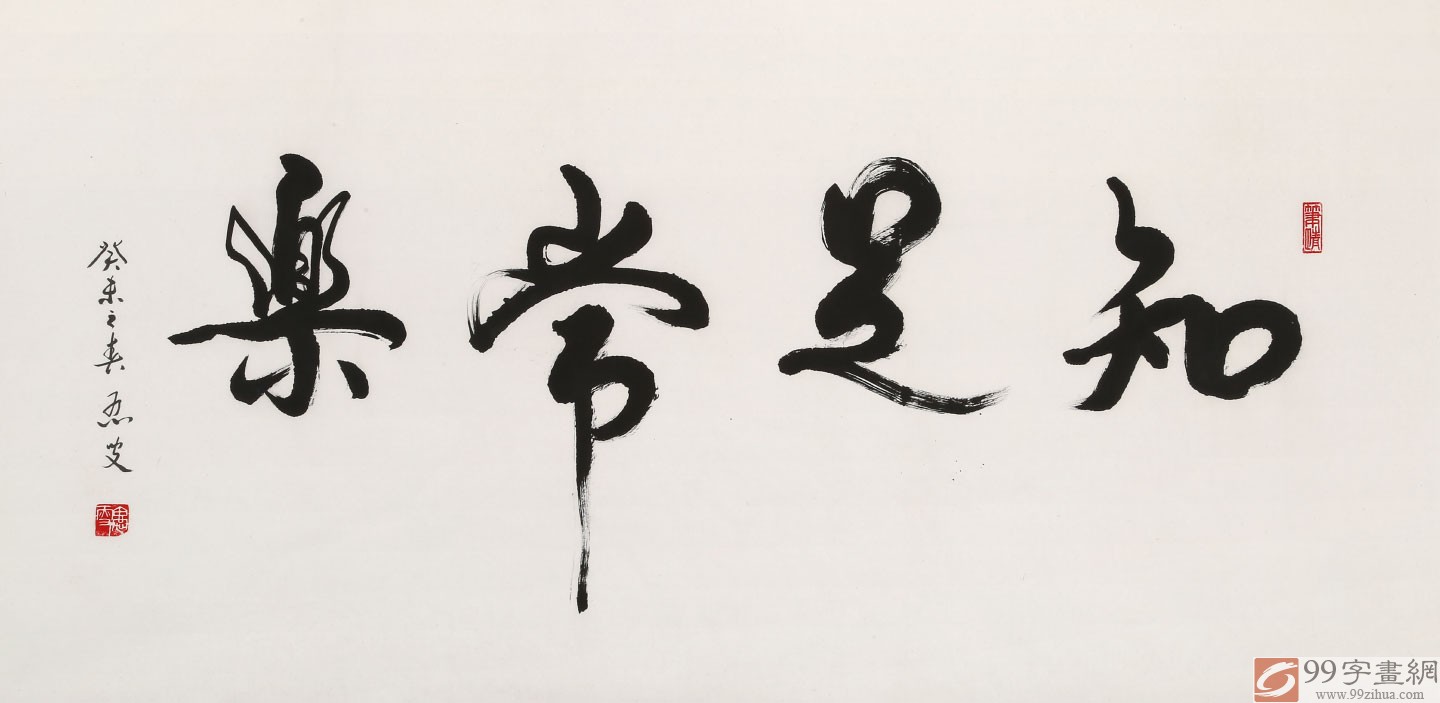 知足常樂
癸未之春
99字畫網
www.99zihua.com